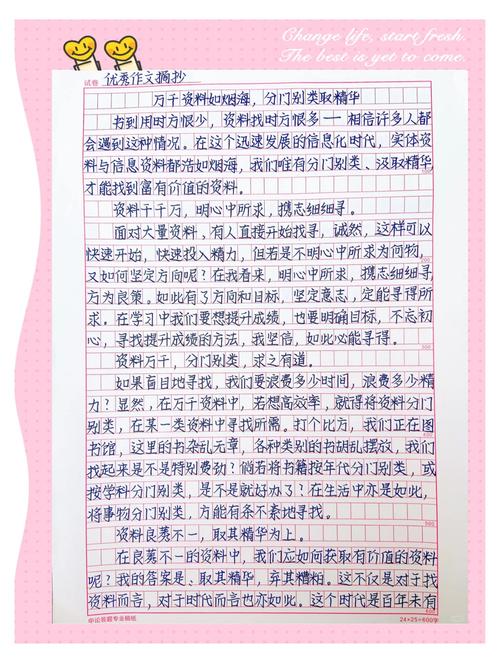 Change life, start fresh.
The best is yet to come.
试卷 优秀作文摘抄
万千资料如烟海，分门别类取精华
书到用时方恨少，资料找时方恨多——相信许多人都
会遇到这种情况。在这个迅速发展的信息化时代，实体资
料与信息资料都浩如烟海，我们唯有分门别类、汲取精华
才能找到富有价值的资料。
资料千千万，明心中所求，携志细细寻。
面对大量资料、有人直接开始找寻，诚然，这样可以
快速开始，快速投入精力，但若是不明心中所求为何物，
又如何坚定方向呢？在我看来，明心中所求，携志细细寻
方为良策。如此有了方向和目标，坚定意志，定能寻得所
求。在学习中我们要想提升成绩，也要明确目标，不忘初
心，寻找提升成绩的方法，我坚信，如此必能寻得。
资料万千，分门别类，求之有道。
如果盲目地寻找，我们要浪费多少时间，浪费多少精
力？显然，在万千资料中，若想高效率，就得将资料分门
别类，在某一类资料中寻找所需。打个比方，我们正在图
书馆，这里的书杂乱无章，各种类别的书胡乱摆放，我们
找起来是不是特别费劲？倘若将书籍按年代分门别类，或
按学科分门别类，是不是就好办了？在生活中亦是如此，
将事物分门别类，方能有条不紊地寻找。
资料良莠不一，取其精华为上。
在良莠不一的资料中，我们应如何获取有价值的资料
呢？我的答案是、取其精华，弃其糟粕。这不仅是对于找
资料而言，对于时代而言也亦如此。这个时代是百年未有
申论答题专业稿纸 24×25=600字